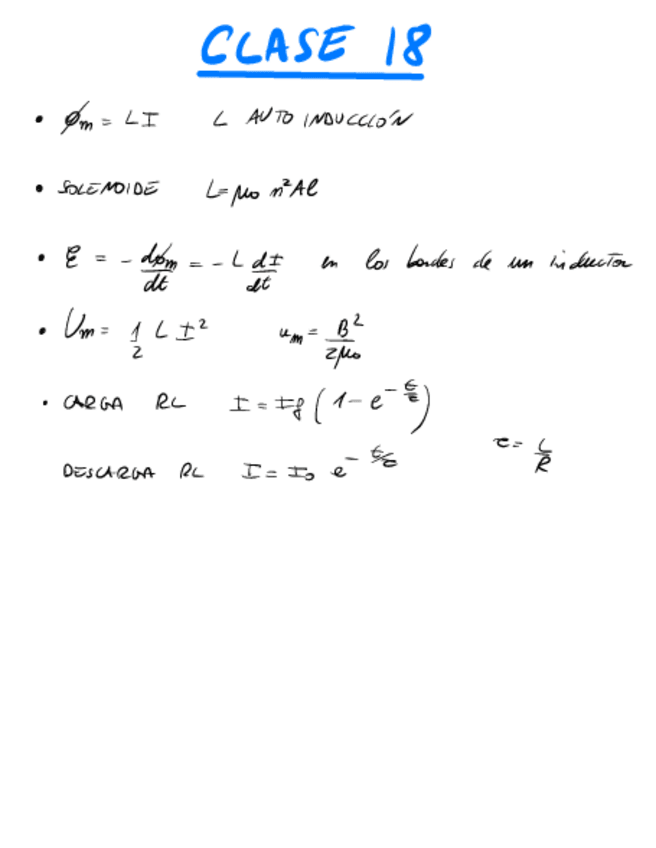 CLASE 18
• ϕm = LI L AUTO INDUCCIÓN
• SOLENOIDE L = μ₀ n²Aℓ
• Ɛ = - dϕm/dt = - L dI/dt en los bordes de un inductor
• Um = 1/2 L I² um = B²/2μ₀
• CARGA RL I = If (1 - e^(-t/τ))
τ = L/R
DESCARGA RL I = I₀ e^(-t/τ)